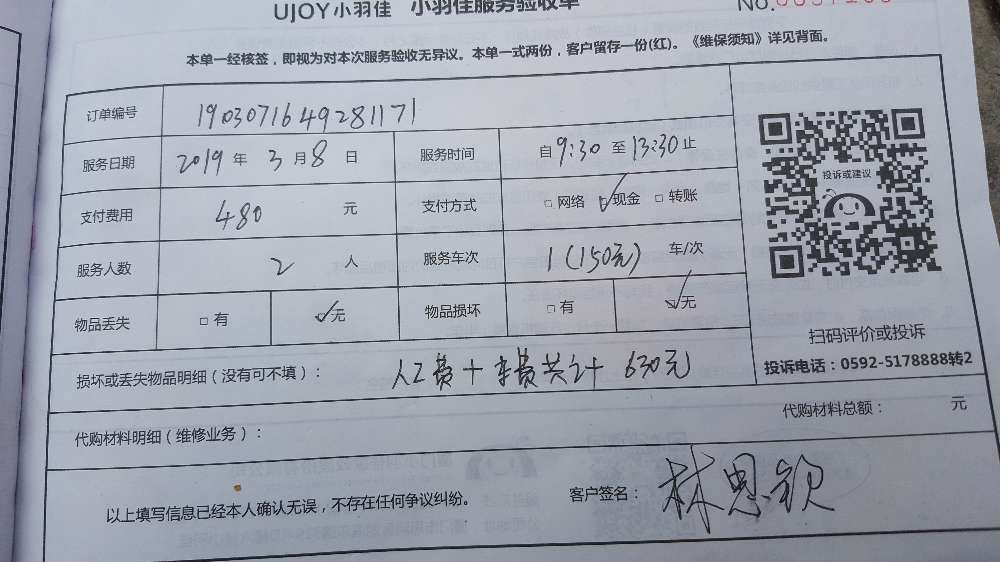 UJOY小羽佳 小羽佳服务验收单
No.
本单一经核签，即视为对本次服务验收无异议。本单一式两份，客户留存一份(红)。《维保须知》详见背面。
订单编号 1903071649281171
服务日期 2019 年 3 月 8 日 服务时间 自 9:30 至 13:30 止
支付费用 480 元 支付方式 □ 网络 ☑ 现金 □ 转账
服务人数 2 人 服务车次 1(150元) 车/次
物品丢失 □ 有 ☑ 无 物品损坏 □ 有 ☑ 无
投诉或建议
扫码评价或投诉
投诉电话：0592-5178888转2
损坏或丢失物品明细（没有可不填）： 人工费+车费共计 630元
代购材料明细（维修业务）： 代购材料总额： 元
以上填写信息已经本人确认无误，不存在任何争议纠纷。 客户签名： 林思钦